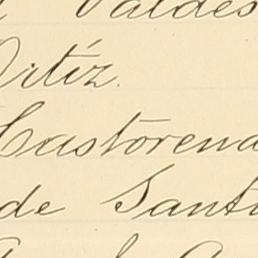 Valdes
Ortíz.
Castorena
de Santi